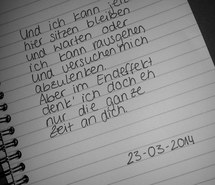 Und ich kann jetzt
hier sitzen bleiben
und warten oder
ich kann rausgehen
und versuchen mich
abzulenken.
Aber im Endeffekt
denk' ich doch eh
nur die ganze
Zeit an dich.
23-03-2014